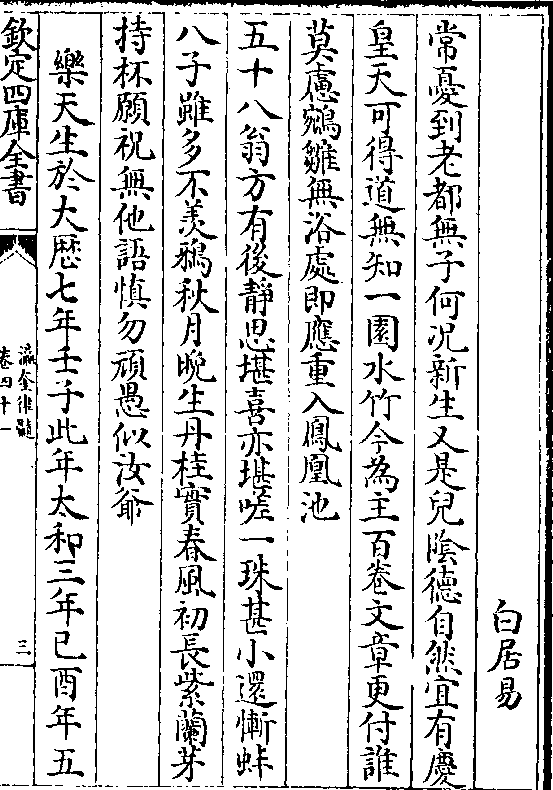 白居易
常憂到老都無子何况新生又是兒陰德自然宜有慶
皇天可得道無知一園水竹今為主百卷文章更付誰
莫慮鵷雛無浴處即應重入鳳凰池
五十八翁方有後靜思堪喜亦堪嗟一珠甚小還慚蚌
八子雖多不羨鴉秋月晚生丹桂實春風初長紫蘭芽
持杯願祝無他語慎勿頑愚似汝爺
樂天生於大厯七年壬子此年太和三年己酉年五
欽定四庫全書
瀛奎律髓
卷四十一
三